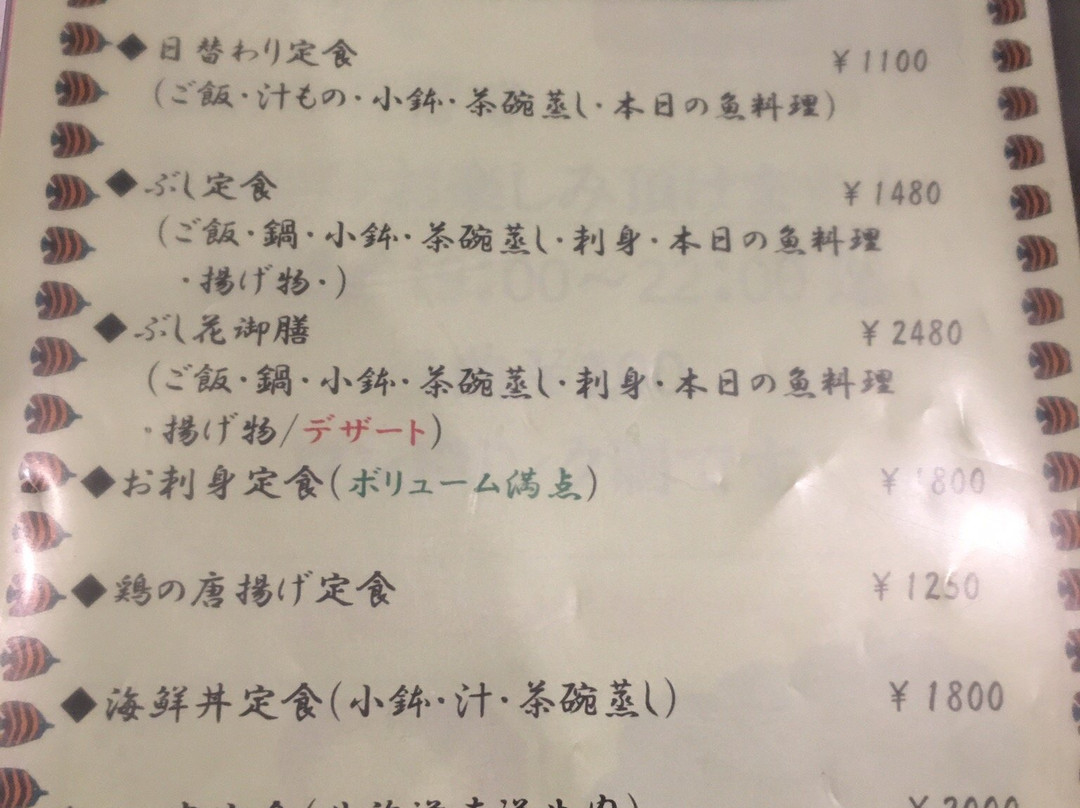 ◆日替わり定食 ¥1100
(ご飯・汁もの・小鉢・茶碗蒸し・本日の魚料理)
◆ぶし定食 ¥1480
(ご飯・鍋・小鉢・茶碗蒸し・刺身・本日の魚料理
・揚げ物・)
◆ぶし花御膳 ¥2480
(ご飯・鍋・小鉢・茶碗蒸し・刺身・本日の魚料理
・揚げ物/デザート)
◆お刺身定食(ボリューム満点) ¥1800
◆鶏の唐揚げ定食 ¥1250
◆海鮮丼定食(小鉢・汁・茶碗蒸し) ¥1800